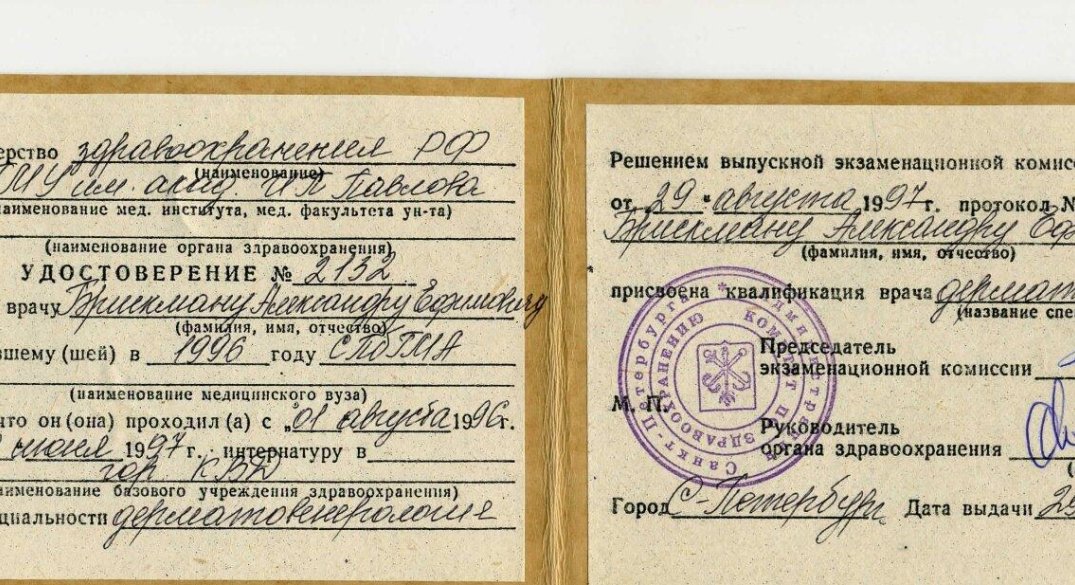 ерство здравоохранения РФ
(наименование)
ГМУ им. акад. И П Павлова
наименование мед. института, мед. факультета ун-та)
(наименование органа здравоохранения)
УДОСТОВЕРЕНИЕ № 2132
врачу Брискману Александру Ефимовичу
(фамилия, имя, отчество)
вшему (шей) в 1996 году СПбГМА
(наименование медицинского вуза)
что он (она) проходил (а) с „01 августа 1996 г.
июля 1997 г. интернатуру в
гор КВД
наименование базового учреждения здравоохранения)
циальности дерматовенерология
Решением выпускной экзаменационной комисс
от „29 " августа 1997 г. протокол №
Брискману Александру Еф
(фамилия, имя, отчество)
присвоена квалификация врача дермат
(название спе
Председатель
экзаменационной комиссии
М. П.
Руководитель
органа здравоохранения
(
Город С-Петербург Дата выдачи 29
Администрация Санкт-Петербурга
КОМИТЕТ ПО ЗДРАВООХРАНЕНИЮ